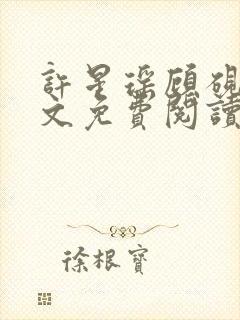 許星琛顧硯
文免費閱讀
徐根寶